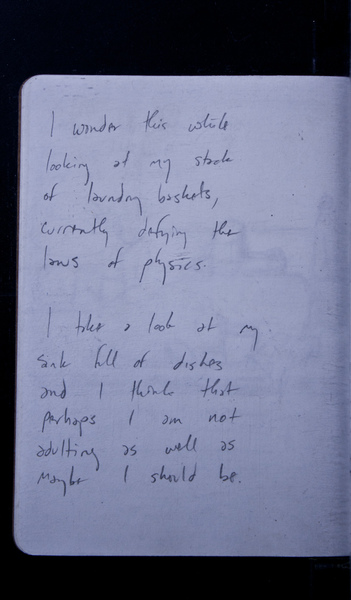 I wonder this while
looking at my stack
of laundry baskets,
currently defying the
laws of physics.
I take a look at my
sink full of dishes
and I think that
perhaps I am not
adulting as well as
maybe I should be.